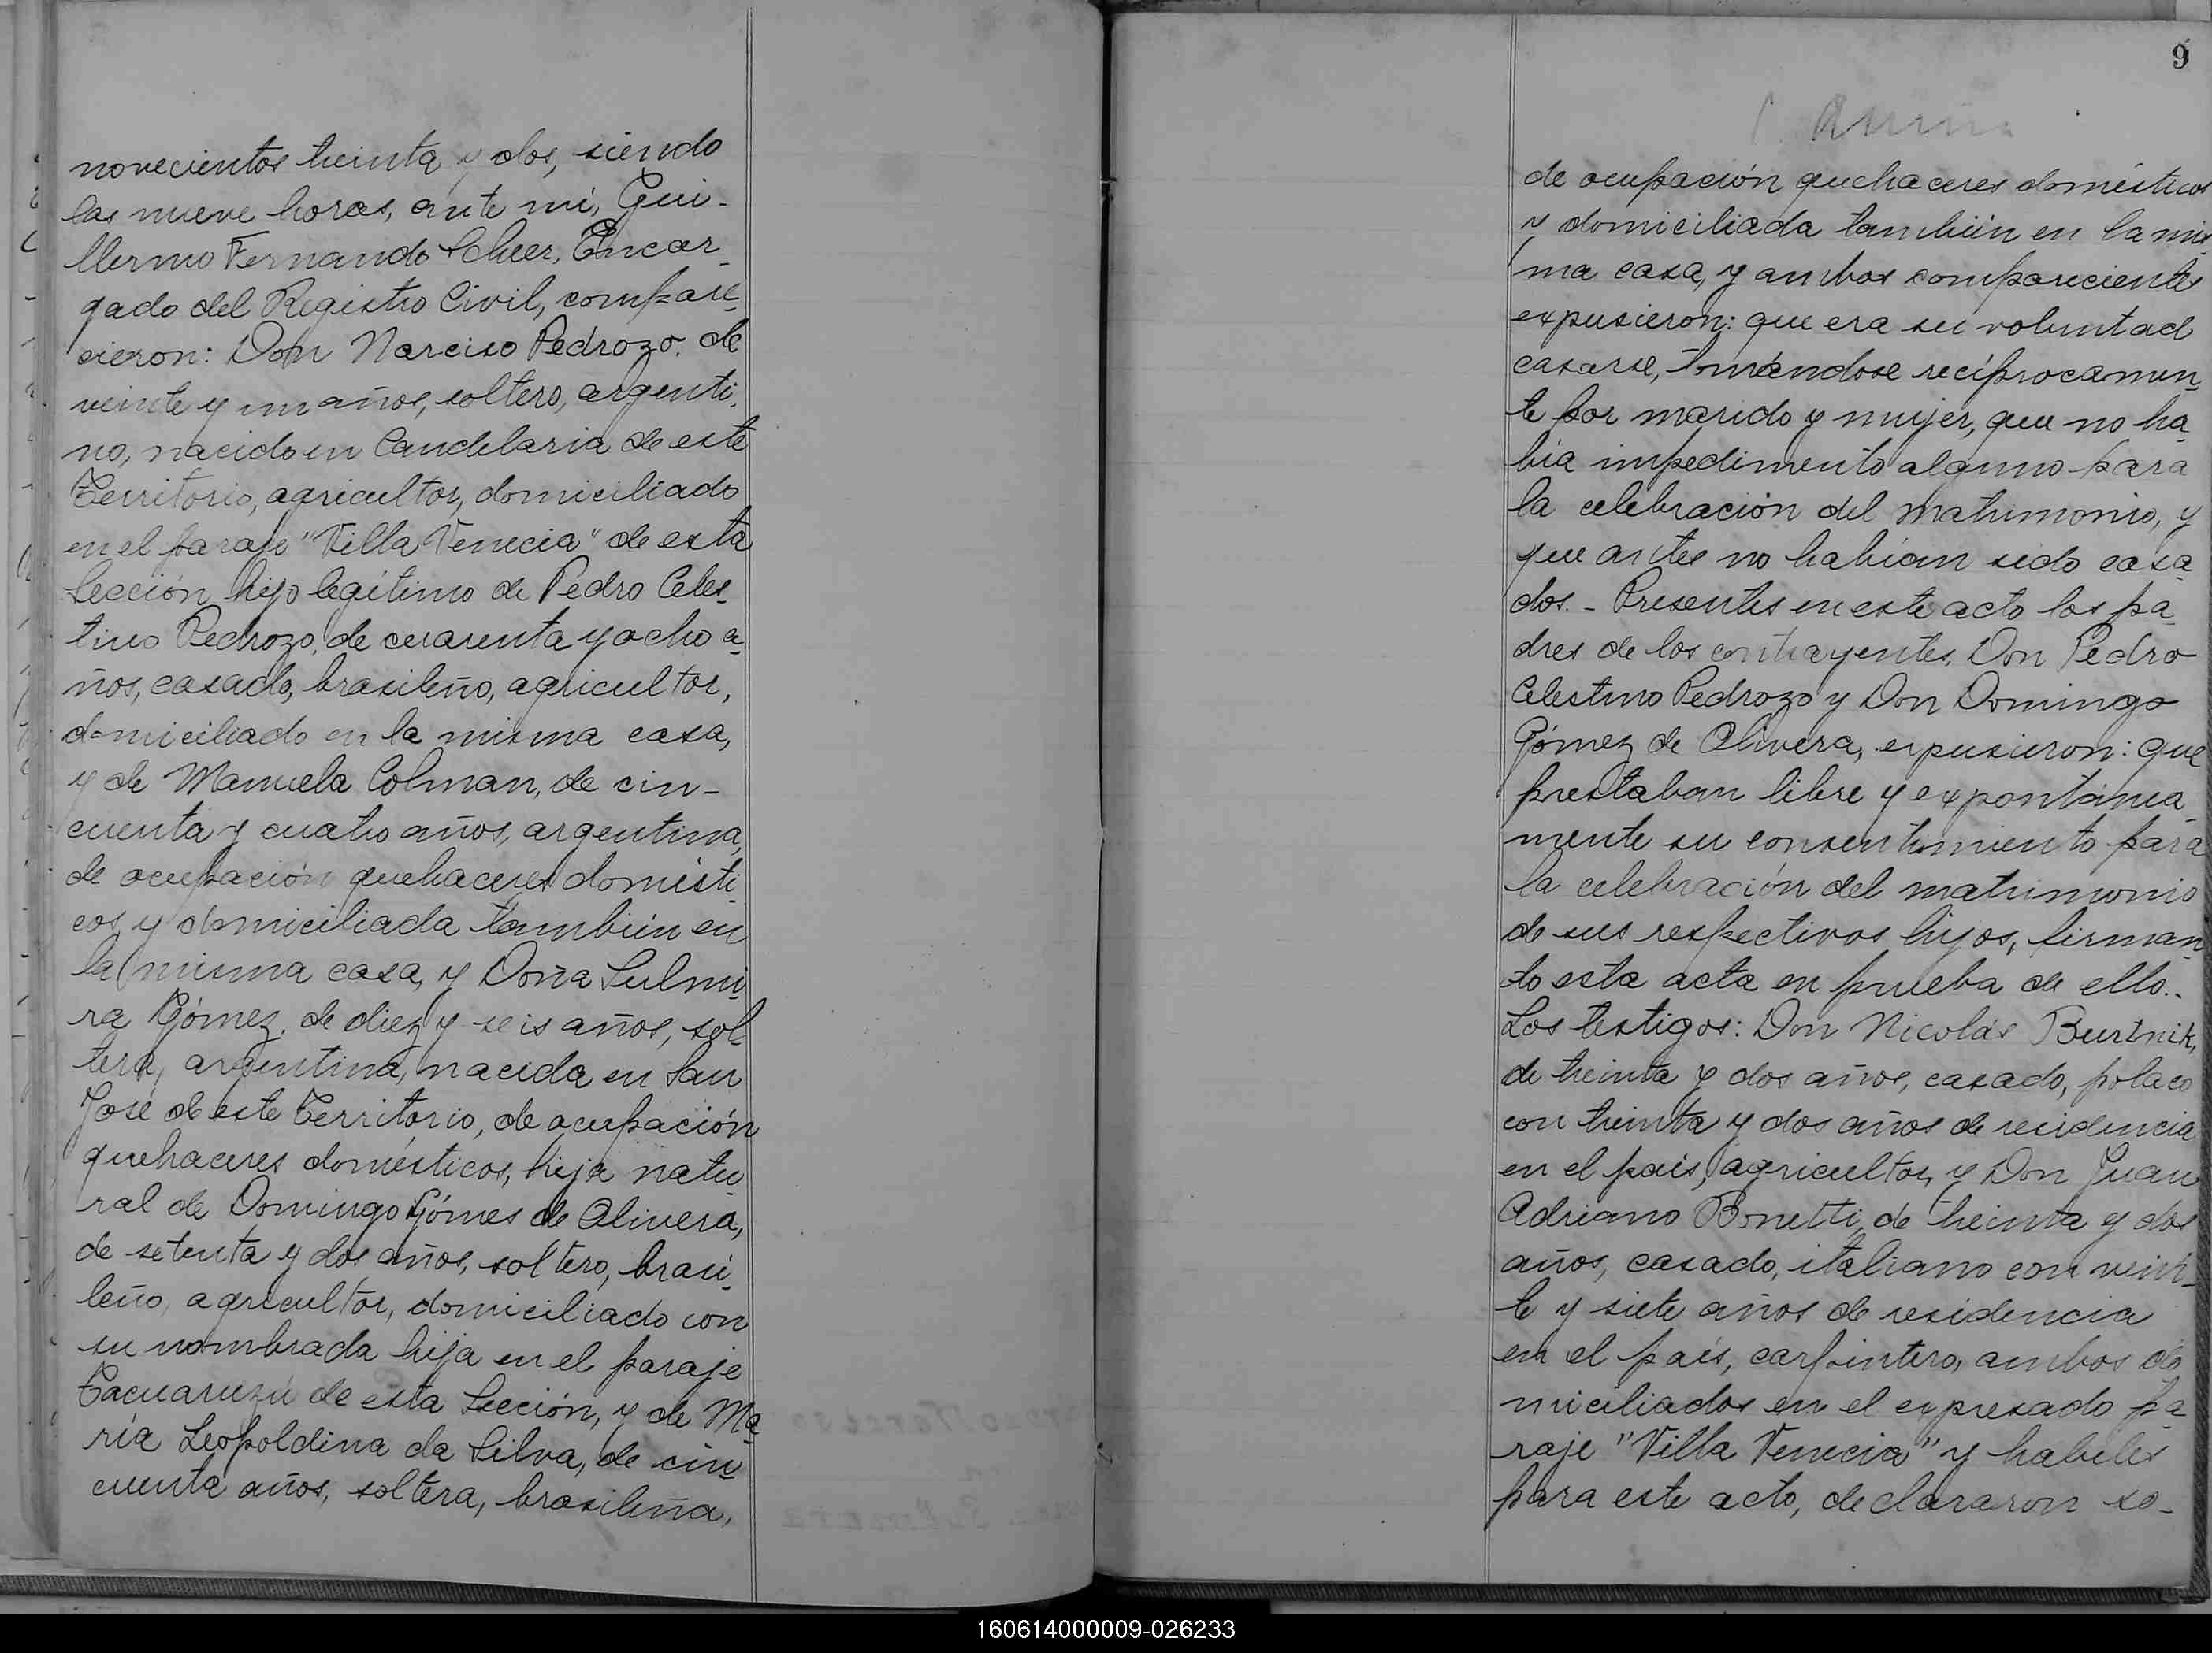 novecientos treinta y dos, siendo
las nueve horas, ante mí, Gui-
llermo Fernando Scheer, Encar-
gado del Registro Civil, compare-
cieron: Don Narciso Pedrozo, de
veinte y un años, soltero, argenti-
no, nacido en Candelaria de este
Territorio, agricultor, domiciliado
en el paraje "Villa Venecia" de esta
Sección, hijo legítimo de Pedro Celes-
tino Pedrozo, de cuarenta y ocho a-
ños, casado, brasileño, agricultor,
domiciliado en la misma casa,
y de Manuela Colman, de cin-
cuenta y cuatro años, argentina,
de ocupación quehaceres domésti-
cos y domiciliada también en
la misma casa, y Doña Sulmi-
ra Gómez, de diez y seis años, sol-
tera, argentina, nacida en San
José de este Territorio, de ocupación
quehaceres domésticos, hija natu-
ral de Domingo Gómes de Olivera,
de setenta y dos años, soltero, brasi-
leño, agricultor, domiciliado con
su nombrada hija en el paraje
Tacuaruzú de esta Sección, y de Ma-
ría Leopoldina da Silva, de cin-
cuenta años, soltera, brasileña,
9
de ocupación quehaceres domésticos
y domiciliada también en la mis-
ma casa, y ambos comparecientes
expusieron: que era su voluntad
casarse, tomándose recíprocamen-
te por marido y mujer, que no ha-
bía impedimento alguno para
la celebración del matrimonio, y
que antes no habían sido casa-
dos.- Presentes en este acto los pa-
dres de los contrayentes, Don Pedro
Celestino Pedrozo y Don Domingo
Gómez de Olivera, expusieron: que
prestaban libre y expontánea-
mente su consentimiento para
la celebración del matrimonio
de sus respectivos hijos, firman-
do esta acta en prueba de ello.-
Los testigos: Don Nicolás Burtnik,
de treinta y dos años, casado, polaco
con treinta y dos años de residencia
en el país, agricultor, y Don Juan
Adriano Bonetti, de treinta y dos
años, casado, italiano con vein-
te y siete años de residencia
en el país, carpintero, ambos do-
miciliados en el expresado pa-
raje "Villa Venecia" y habeles
para este acto, declararon so-
160614000009-026233